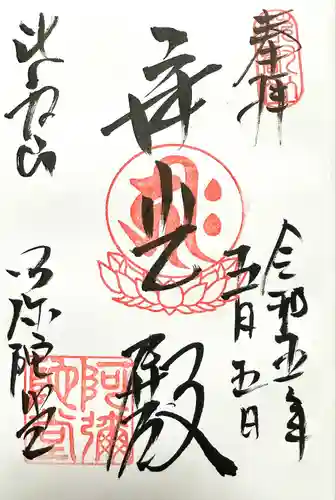 奉拝
令和五年
五月五日
光殿
比叡山
阿弥陀堂
阿彌陀堂